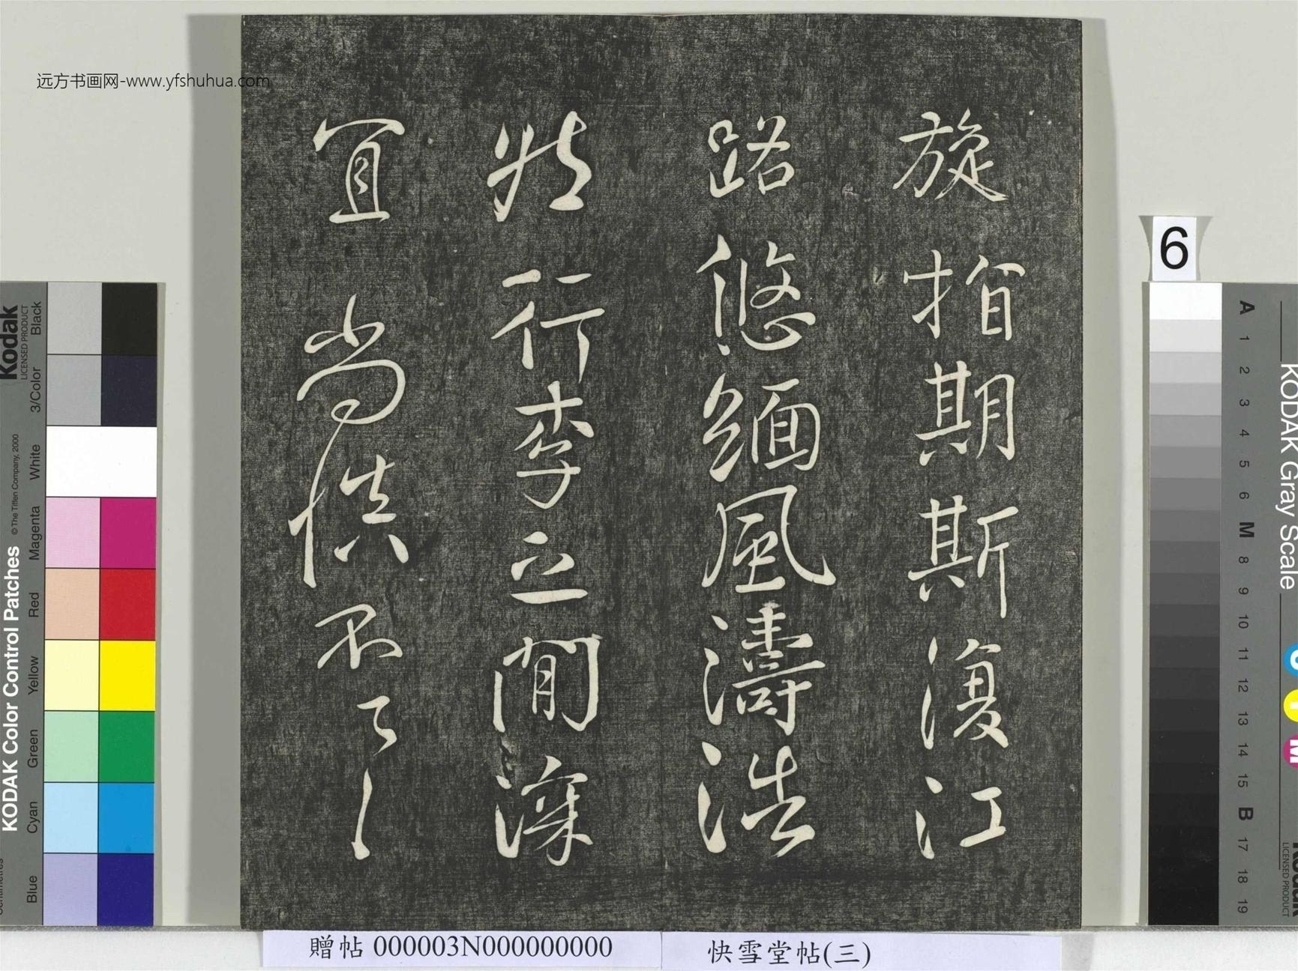 远方书画网-www.yfshuhua.com
旋指期斯復江
路悠緬風濤浩
然行李之間深
宜尚慎不具
贈帖 000003N000000000
快雪堂帖(三)
6
Kodak
LICENSED PRODUCT
KODAK Color Control Patches
© The Tiffen Company, 2000
Black
3/Color
White
Magenta
Red
Yellow
Green
Cyan
Blue
KODAK Gray Scale
A 1 2 3 4 5 6 M 8 9 10 11 12 13 14 15 B 17 18 19
C
Y
M
Kodak
LICENSED PRODUCT